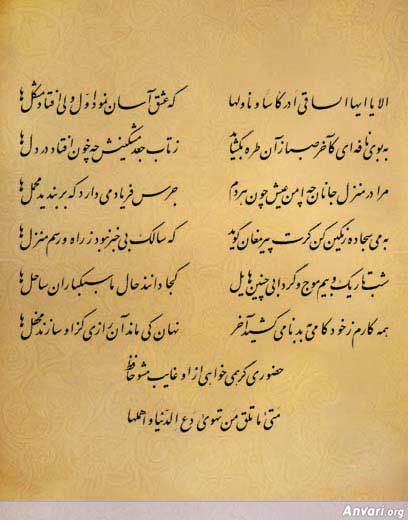 الا یا ایها الساقی أدر کأساً و ناولها که عشق آسان نمود اوّل ولی افتاد مشکل‌ها
به بوی نافه‌ای کآخر صبا زآن طره بگشاید ز تاب جعد مشکینش چه خون افتاد در دل‌ها
مرا در منزل جانان چه امن عیش چون هر دم جرس فریاد می دارد که بربندید محمل‌ها
به می سجاده رنگین کن گرت پیر مغان گوید که سالک بی خبر نبود ز راه و رسم منزل‌ها
شب تاریک و بیم موج و گردابی چنین هایل کجا دانند حال ما سبکباران ساحل‌ها
همه کارم ز خود کامی به بدنامی کشید آخر نهان کی ماند آن رازی کزو سازند محفل‌ها
حضوری گر همی خواهی از او غایب مشو حافظ
متی ما تلق من تهوی دع الدّنیا و اهملها
Anvari.org